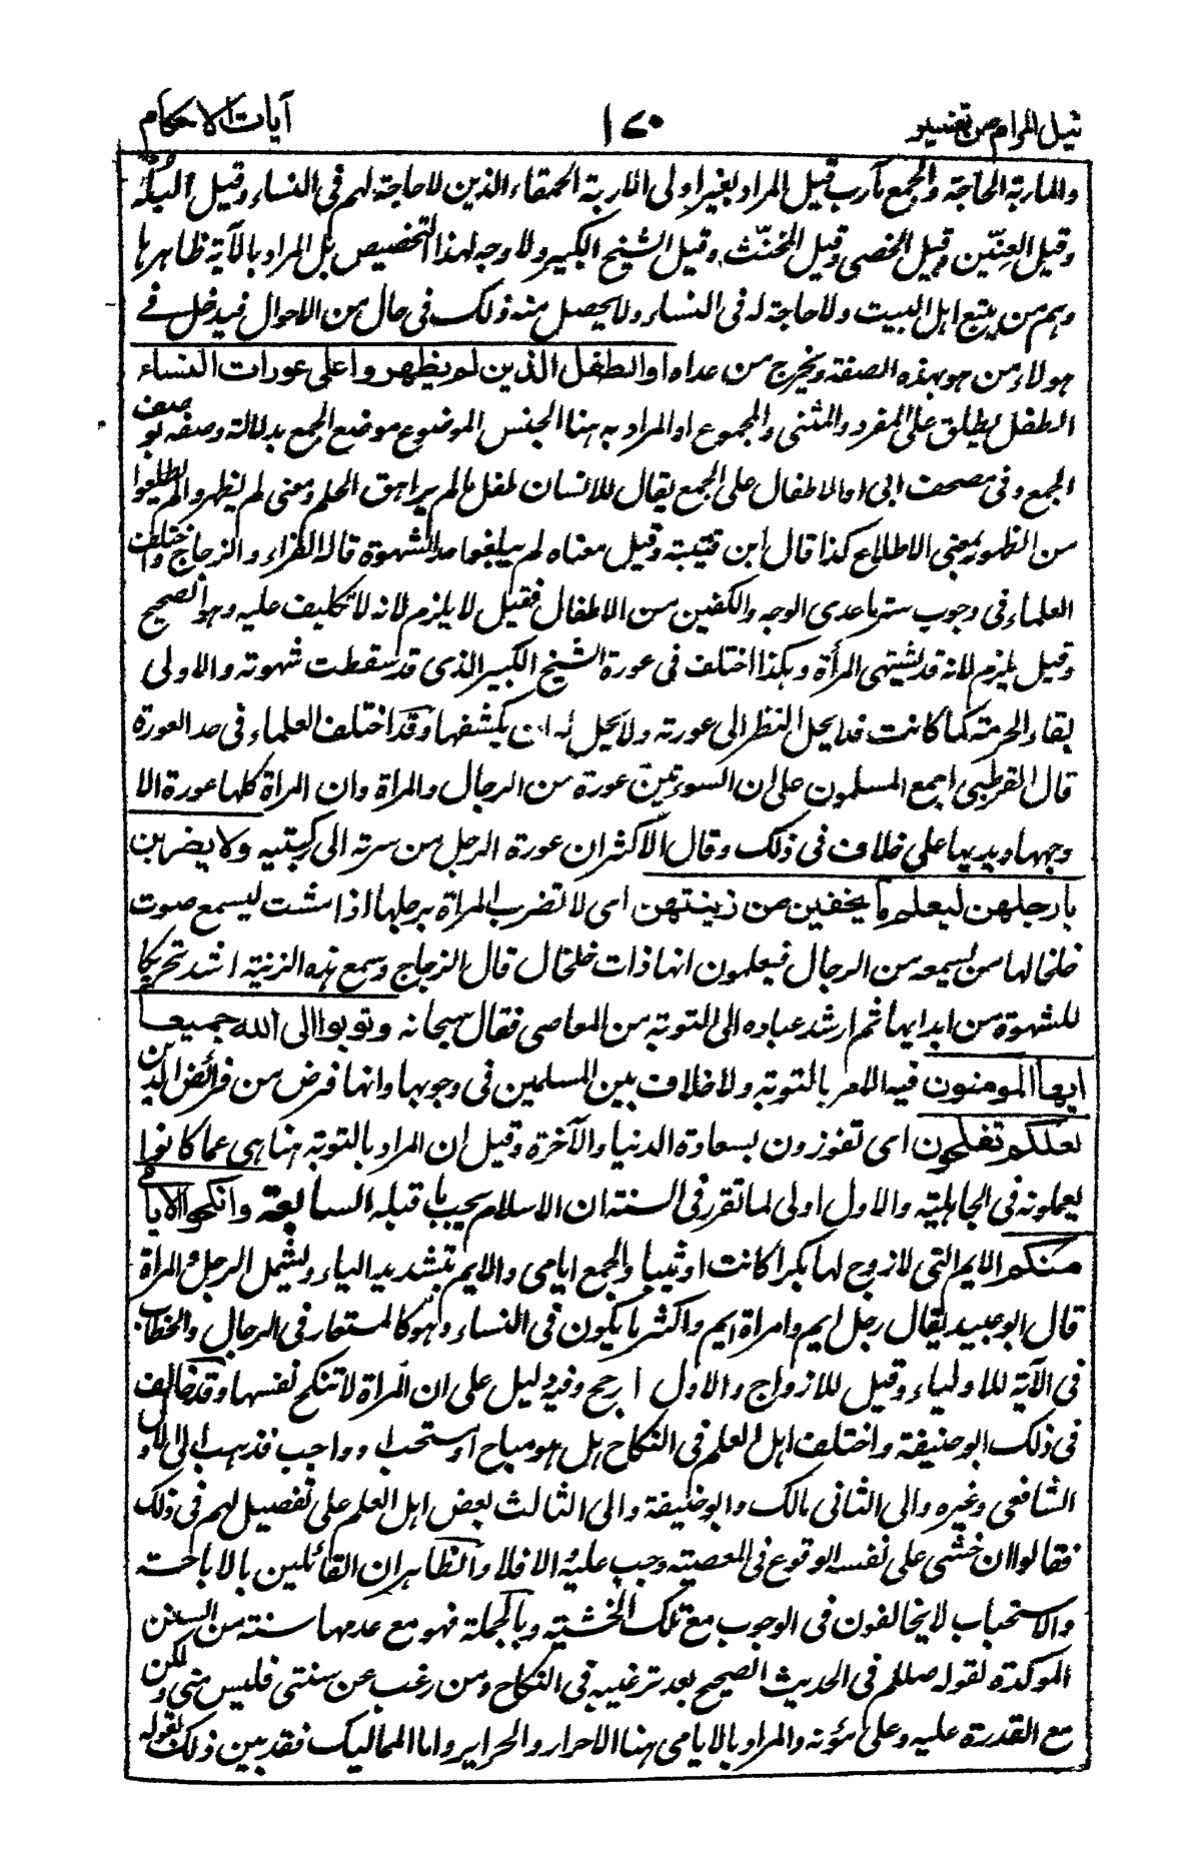 نيل المرام من تفسير
١٧٠
آيات الاحكام
والماربة الحاجة والجمع مآرب قيل المراد بغير اولى الاربة الحمقاء الذين لا حاجة لهم في النساء وقيل البله
وقيل العنّين وقيل الخصي وقيل المخنّث وقيل الشيخ الكبير ولا وجه لهذا التخصيص بل المراد بالآية ظاهرها
وهم من يتبع اهل البيت ولا حاجة له في النساء ولا يحصل منه ذلك في حال من الاحوال فيدخل في
هولاء من هو بهذه الصفة ويخرج من عداه او الطفل الذين لم يظهروا على عورات النساء
الطفل يطلق على المفرد والمثنى والمجموع او المراد به هنا الجنس الموضوع موضع الجمع بدلالة وصفه بوصف
الجمع وفي مصحف ابي او الاطفال على الجمع يقال للانسان طفل ما لم يراهق الحلم ومعنى لم يظهروا لم يطلعوا
من الظهور بمعنى الاطلاع كذا قال ابن قتيبة وقيل معناه لم يبلغوا حد الشهوة قاله الفراء والزجاج واختلف
العلماء في وجوب ستر ما عدى الوجه والكفين من الاطفال فقيل لا يلزم لانه لا تكليف عليه وهو الصحيح
وقيل يلزم لانه قد يشتهي المرأة وهكذا اختلف في عورة الشيخ الكبير الذي قد سقطت شهوته والاولى
بقاء الحرمة كما كانت فلا يحل النظر الى عورته ولا يحل له ان يكشفها وقد اختلف العلماء في حد العورة
قال القرطبي اجمع المسلمون على ان السوءتين عورة من الرجال والمراة وان المراة كلها عورة الا
وجهها ويديها على خلاف في ذلك وقال الاكثر ان عورة الرجل من سرته الى ركبتيه ولا يضربن
بارجلهن ليعلم ما يخفين من زينتهن اى لا تضرب المراة برجلها اذا مشت ليسمع صوت
خلخالها من يسمعه من الرجال فيعلمون انها ذات خلخال قال الزجاج وسمع هذه الزنية اشد تحريكا
للشهوة من ابدايها ثم ارشد عباده الى التوبة من المعاصي فقال سبحانه وتوبوا الى الله جميعا
ايها المومنون فيه الامر بالتوبة ولا خلاف بين المسلمين في وجوبها وانها فرض من فرائض الدين
لعلكم تفلحون اى تفوزون بسعادة الدنيا والآخرة وقيل ان المراد بالتوبة هنا هى عما كانوا
يعملونه في الجاهلية والاول اولى لما تقرر في السنة ان الاسلام يجب ما قبله السابعة وانكحوا الايامى
منكم الايم التي لا زوج لها بكرا كانت او ثيبا والجمع ايامى والايم بتشديد الياء ويشمل الرجل والمراة
قال ابو عبيد يقال رجل ايم وامراة ايم واكثر ما يكون في النساء وهو كالمستعار في الرجال والخطاب
في الآية للاولياء وقيل للازواج والاول ارجح وفيه دليل على ان المراة لا تنكح نفسها وقد خالف
في ذلك ابو حنيفة واختلف اهل العلم في النكاح هل هو مباح او مستحب او واجب فذهب الى الاول
الشافعي وغيره والى الثاني مالك وابو حنيفة والى الثالث بعض اهل العلم على تفصيل لهم في ذلك
فقالوا ان خشى على نفسه الوقوع في المعصية وجب عليه والا فلا والظاهر ان القائلين بالاباحة
والاستحباب لا يخالفون في الوجوب مع تلك الخشية وبالجملة فهو مع عدمها سنة من السنن
الموكدة لقوله صللم في الحديث الصحيح بعد ترغيبه في النكاح ومن رغب عن سنتي فليس مني ولكن
مع القدرة عليه وعلى مؤنه والمراد بالايامى هنا الاحرار والحراير واما المماليك فقد بين ذلك بقوله